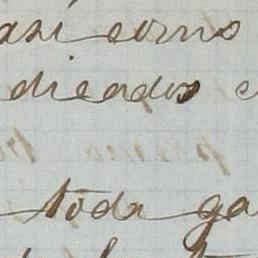 así como
dicados
toda ga